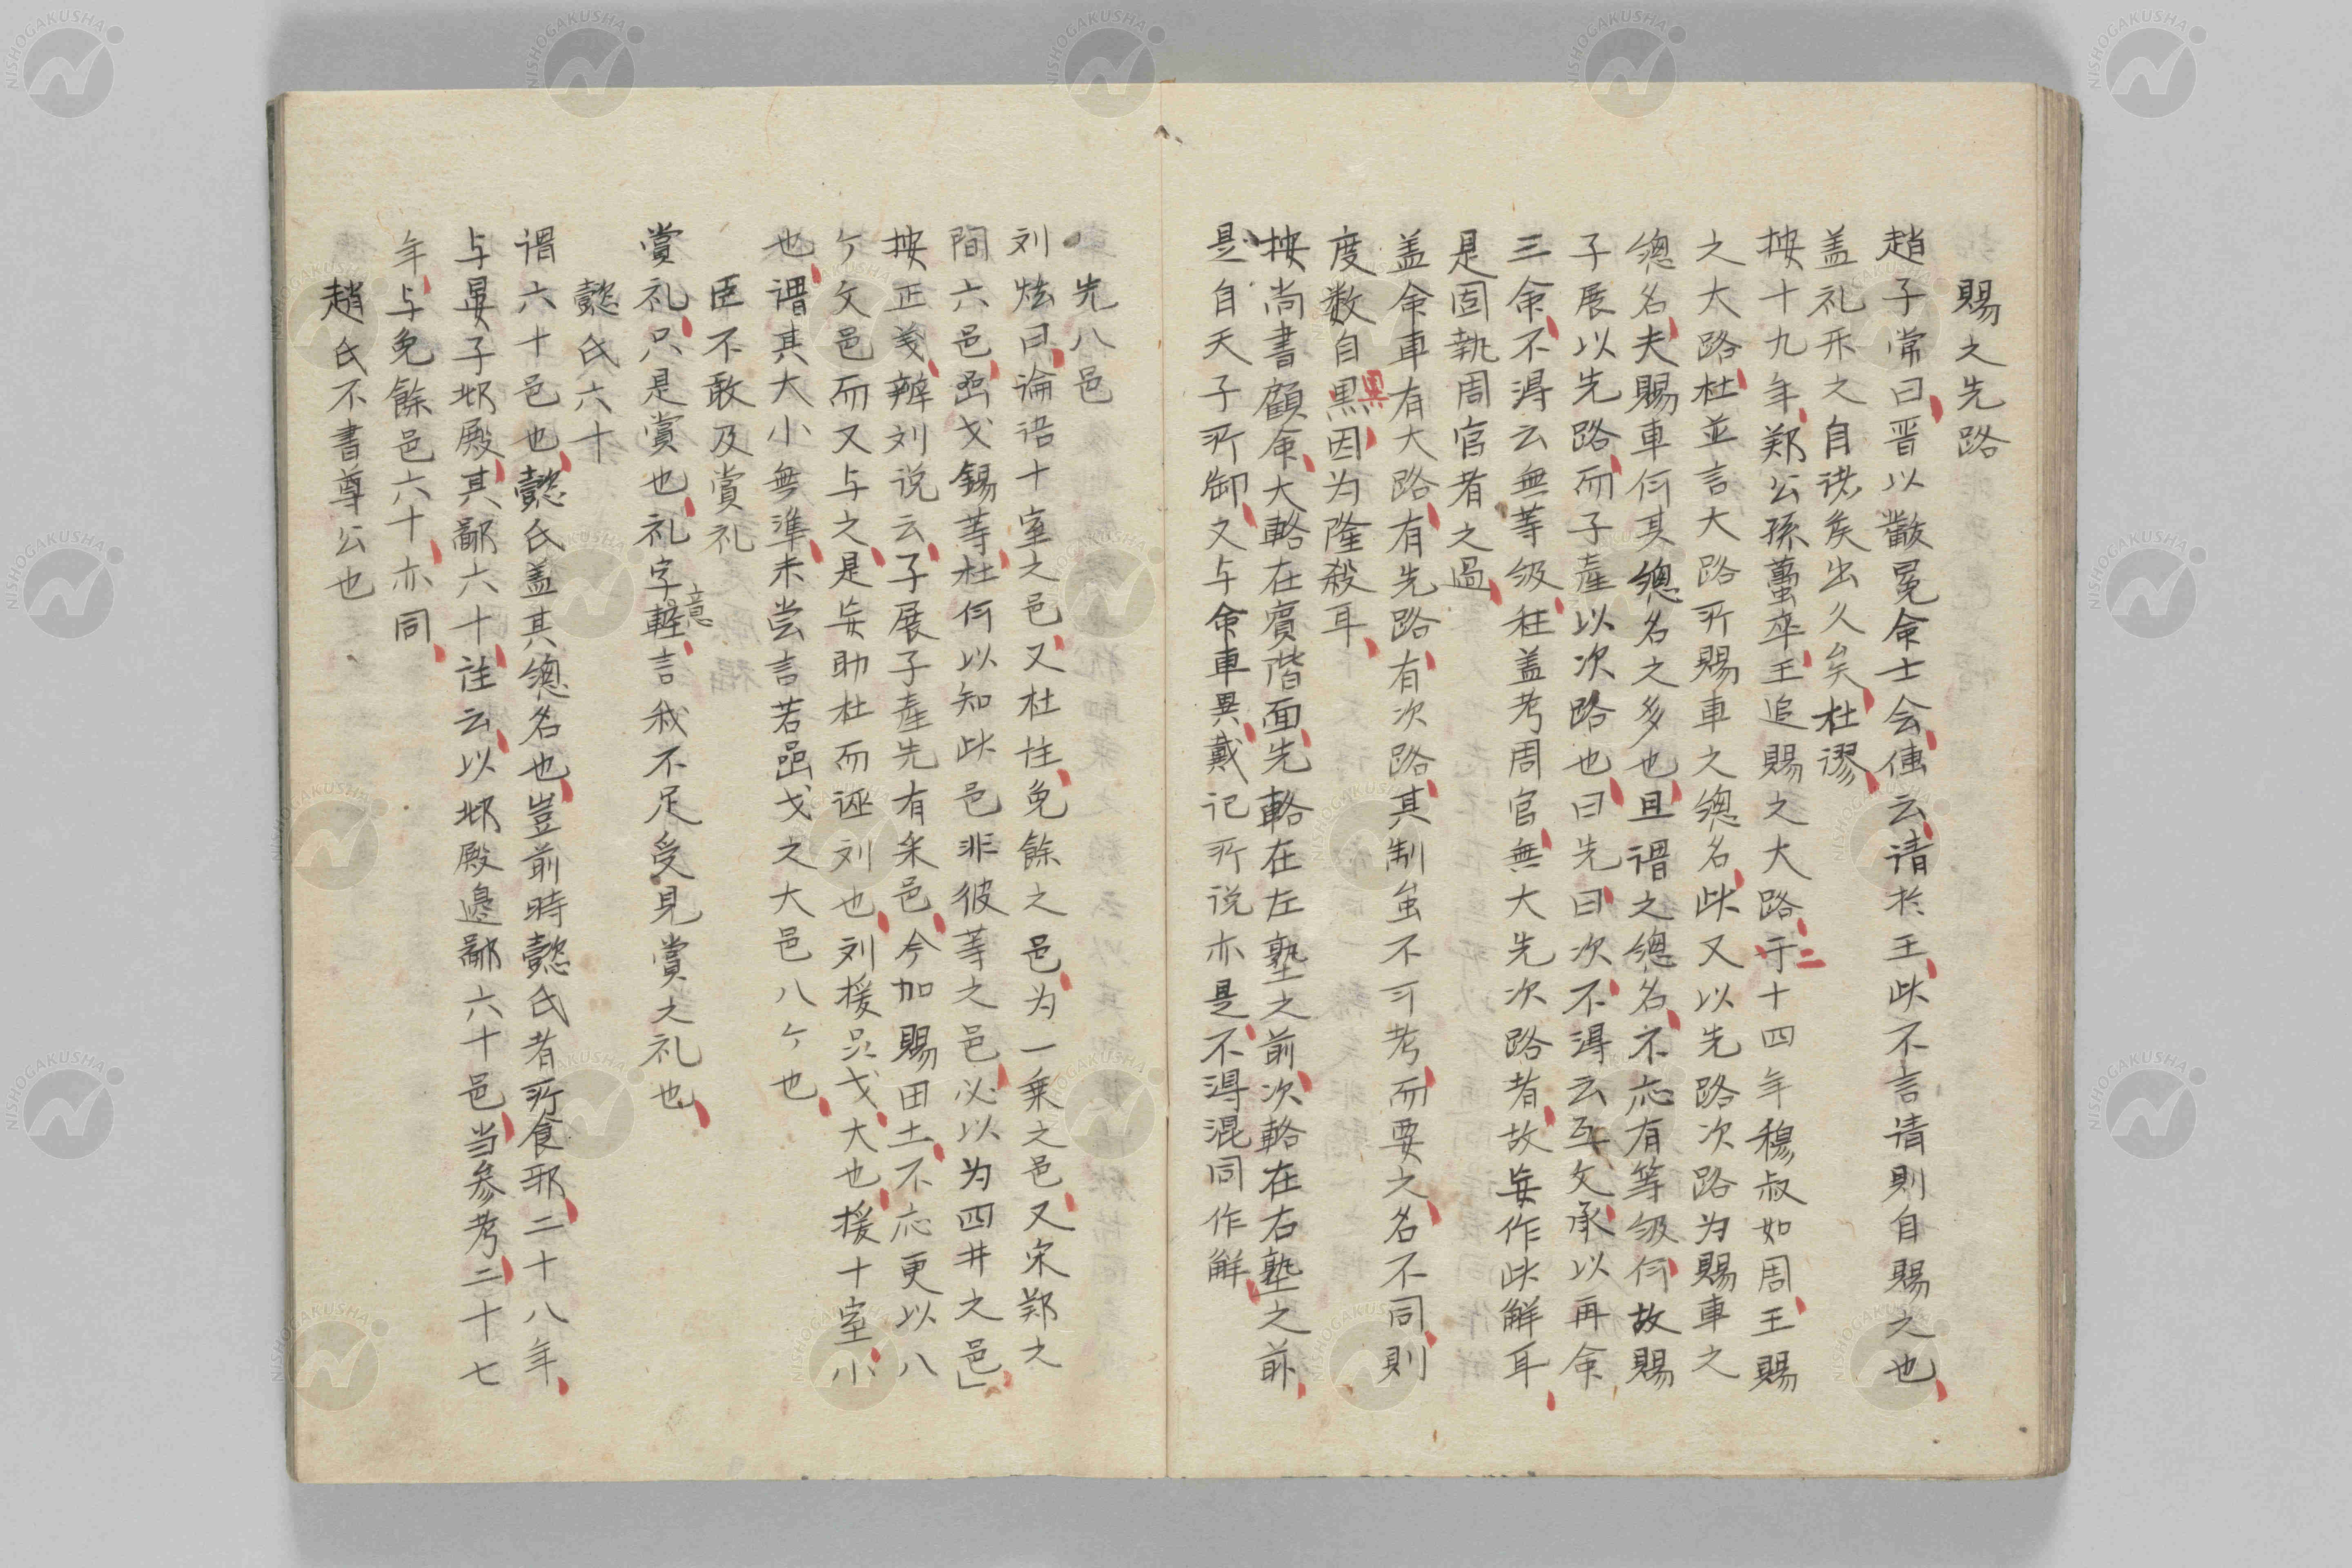 賜之先路
趙子常曰晋以黻冕命士会傳云请於王此不言请則自賜之也
盖礼𠛬之自诸矦出久矣杜謬
按十九年郑公孫蠆卒王追賜之大路于二十四年穆叔如周王賜
之大路杜並言大路所賜車之總名此又以先路次路为賜車之
總名夫賜車何其總名之多也且谓之總名不応有等级何故賜
子展以先路而子產以次路也曰先曰次不得云互文承以再命
三命不得云無等级杜盖考周官無大先次路者故妄作此解耳
是固執周官者之過
盖命車有大路有先路有次路其制虽不可考而要之名不同則
度数自異因为隆殺耳
按尚書顧命大輅在賓階面先輅在左塾之前次輅在右塾之前
是自天子所御又与命車異戴记所说亦是不得混同作解
先八邑
刘炫曰論语十室之邑又杜注免餘之邑为一乗之邑又宋郑之
間六邑嵒戈錫等杜何以知此邑非彼等之邑必以为四井之邑」
按正义辨刘说云子展子產先有采邑今加賜田土不応更以八
ケ文邑而又与之是妄助杜而诬刘也刘援嵒戈大也援十室小
也谓其大小無準未尝言若嵒戈之大邑八ケ也
臣不敢及賞礼
賞礼只是賞也礼字軽意言我不足受見賞之礼也
懿氏六十
谓六十邑也懿氏盖其總名也豈前時懿氏者所食邪二十八年
与晏子邶殿其鄙六十註云以邶殿邊鄙六十邑当参考二十七
年与免餘邑六十亦同
趙氏不書尊公也
NISHOGAKUSHA